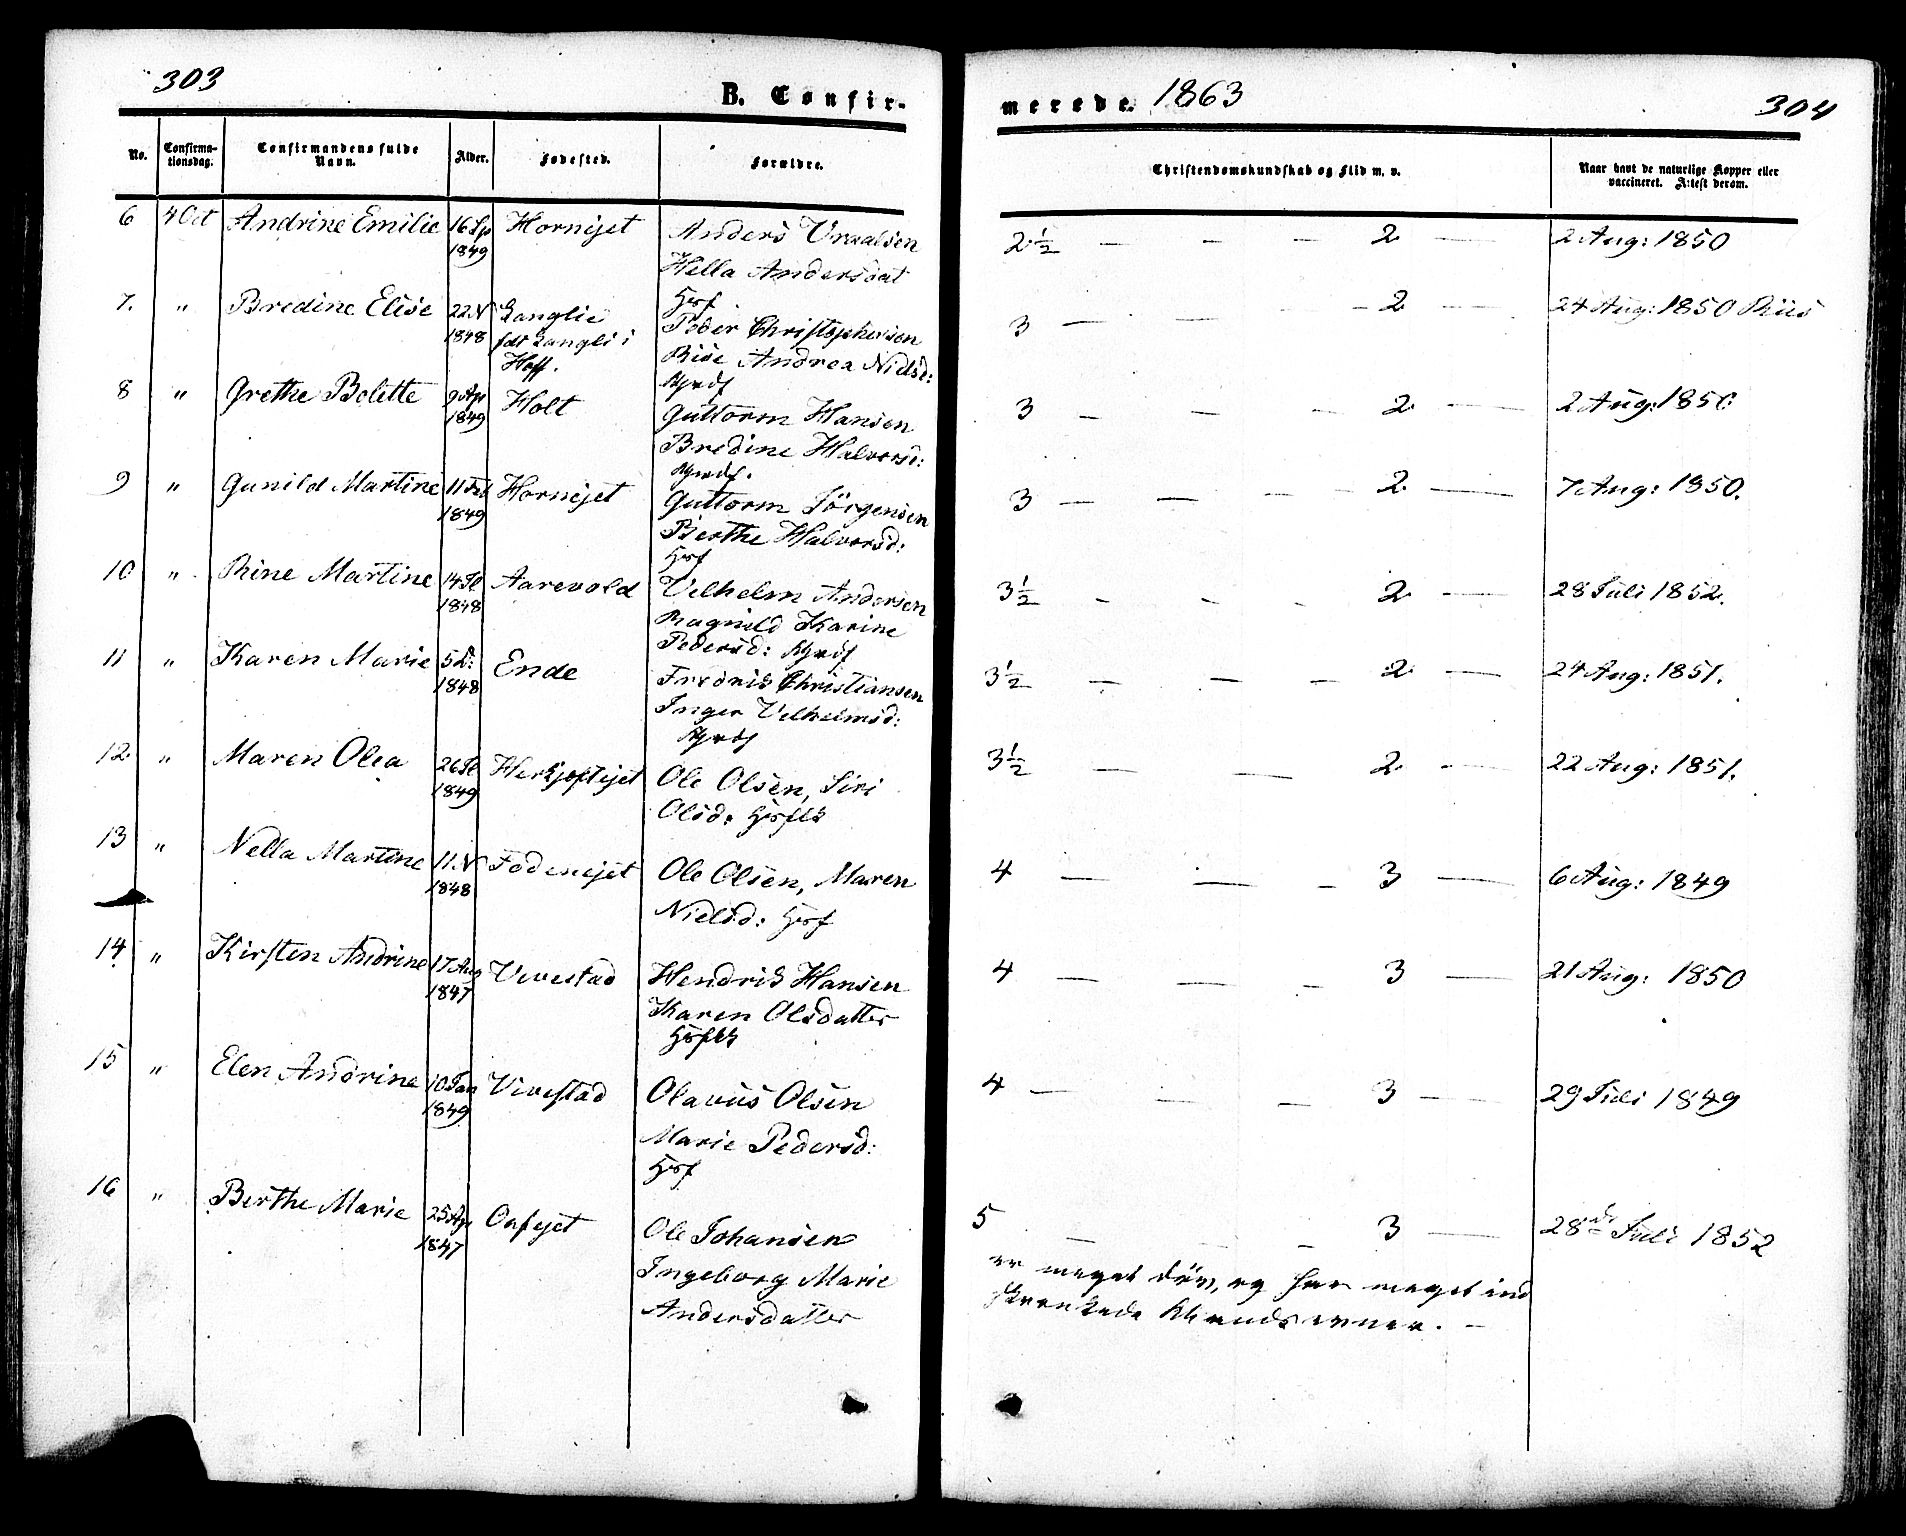 303
B. Confir-
merede. 1863
304
No.
Confirma-
tionsdag.
Confirmandens fulde
Navn.
Alder.
Fødested.
Forældre.
Christendomskundskab og Flid m. v.
Naar havt de naturlige Kopper eller
vaccineret. Attest derom.
6 4 Oct Andrine Emilie 16 Sp Hornejet Anders 2½ — — — 2 — 2 Aug: 1850
1849 Hella Andersdat
7. " Bredine Elise 22 N Langlie 3 — — 2 — 24 Aug: 1850 Riis
1848 fdt Langli i Peder Christophersen
Hoff. Andrea Nielsd:
8 " Grethe Bolette 9 Ap Holt Guttorm Hansen 3 — — — 2 — 2 Aug: 1850
1849 Bredine Halvorsd:
9 " Gunild Martine 11 Feb Hornejet Guttorm Jörgensen 3 — — — 2 — 7 Aug: 1850.
1849 Berthe Halvorsd:
10 " Rine Martine 14 Jl Aarevold Vilhelm Andersen 3½ — — — 2 — 28 Juli 1852.
1848 Ragnild Karine
Pedersd:
11 " Karen Marie 5 D: Ende Fredrik Christiansen 3½ — — — 2 — 24 Aug: 1851.
1848 Inger Velhelmsd:
12 " Maren Olea 26 Jl Ole Olsen, Siri 3½ — — 2 — 22 Aug: 1851.
1849 Olsd:
13 " Nella Martine 11 N Ole Olsen, Maren 4 — — — 3 — 6 Aug: 1849
1848 Nielsd:
14 " Kirsten Andrine 17 Aug Vivestad Hendrik Hansen 4 — — — 3 — 21 Aug: 1850
1847 Karen Olsdatter
15 " Elen Andrine 10 Jan Vivestad Olavus Olsen 4 — — — 3 — 29 Juli 1849
1849 Marie Pedersd:
16 " Berthe Marie 25 Ap Ole Johansen 5 — — — 3 — 28de Juli 1852
1847 Ingeborg Marie er meget döv, og har meget ind
Andersdatter skrænkede Aandsevner. —